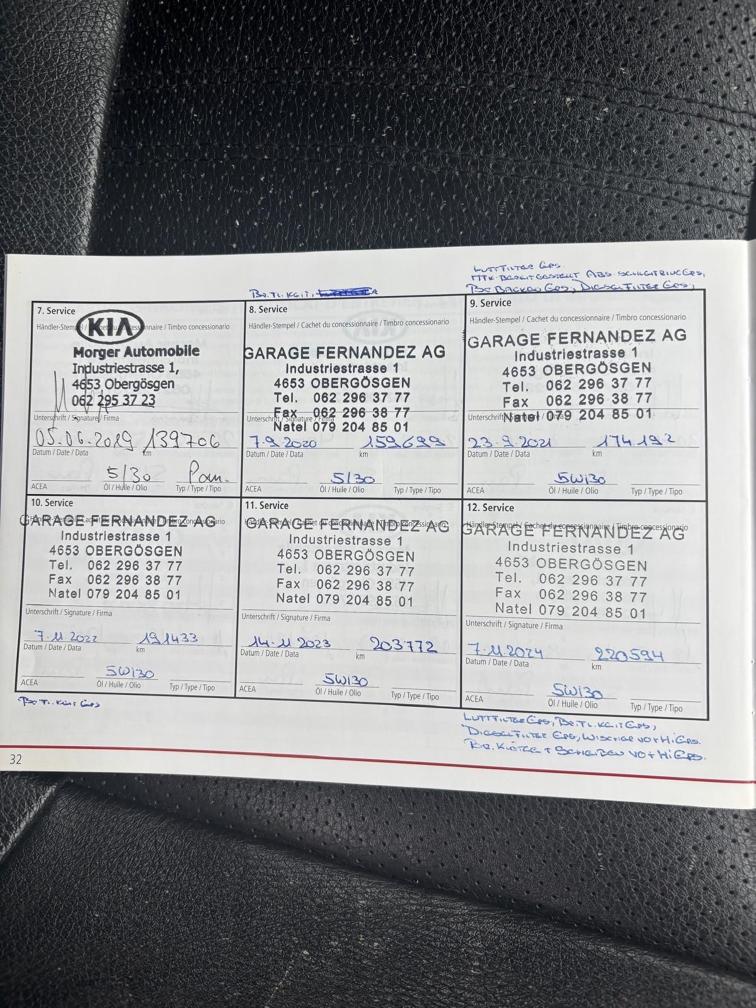 Br. Fl. Keit.
LUFTFILTER Ers.
ABS
Br Backen Ers, Dieselfilter Ers,
7. Service
Händler-Stempel / Timbro concessionario
KIA
Morger Automobile
Industriestrasse 1,
4653 Obergösgen
062 295 37 23
Unterschrift / Signature / Firma
05.06.2019 139706
Datum / Date / Data km
5/30
ACEA Öl / Huile / Olio Typ / Type / Tipo
8. Service
Händler-Stempel / Cachet du concessionnaire / Timbro concessionario
GARAGE FERNANDEZ AG
Industriestrasse 1
4653 OBERGÖSGEN
Tel. 062 296 37 77
Fax 062 296 38 77
Natel 079 204 85 01
Unterschrift / Signature / Firma
7.9.2020 159699
Datum / Date / Data km
5/30
ACEA Öl / Huile / Olio Typ / Type / Tipo
9. Service
Händler-Stempel / Cachet du concessionnaire / Timbro concessionario
GARAGE FERNANDEZ AG
Industriestrasse 1
4653 OBERGÖSGEN
Tel. 062 296 37 77
Fax 062 296 38 77
Natel 079 204 85 01
Unterschrift
23.9.2021 174192
Datum / Date / Data km
5W30
ACEA Öl / Huile / Olio Typ / Type / Tipo
10. Service
GARAGE FERNANDEZ AG
Industriestrasse 1
4653 OBERGÖSGEN
Tel. 062 296 37 77
Fax 062 296 38 77
Natel 079 204 85 01
Unterschrift / Signature / Firma
7.11.2022 191433
Datum / Date / Data km
5W30
ACEA Öl / Huile / Olio Typ / Type / Tipo
11. Service
GARAGE FERNANDEZ AG
Industriestrasse 1
4653 OBERGÖSGEN
Tel. 062 296 37 77
Fax 062 296 38 77
Natel 079 204 85 01
Unterschrift / Signature / Firma
14.11.2023 203772
Datum / Date / Data km
5W30
ACEA Öl / Huile / Olio Typ / Type / Tipo
12. Service
GARAGE FERNANDEZ AG
Industriestrasse 1
4653 OBERGÖSGEN
Tel. 062 296 37 77
Fax 062 296 38 77
Natel 079 204 85 01
Unterschrift / Signature / Firma
7.11.2024 220594
Datum / Date / Data km
5W30
ACEA Öl / Huile / Olio Typ / Type / Tipo
Br. Fl. Keit Ers
LUFTFILTER Ers, Br. Fl. Keit Ers,
Dieselfilter Ers, Wischer vo+Hi Ers.
Br. Klötze + Scheiben vo+Hi Ers.
32